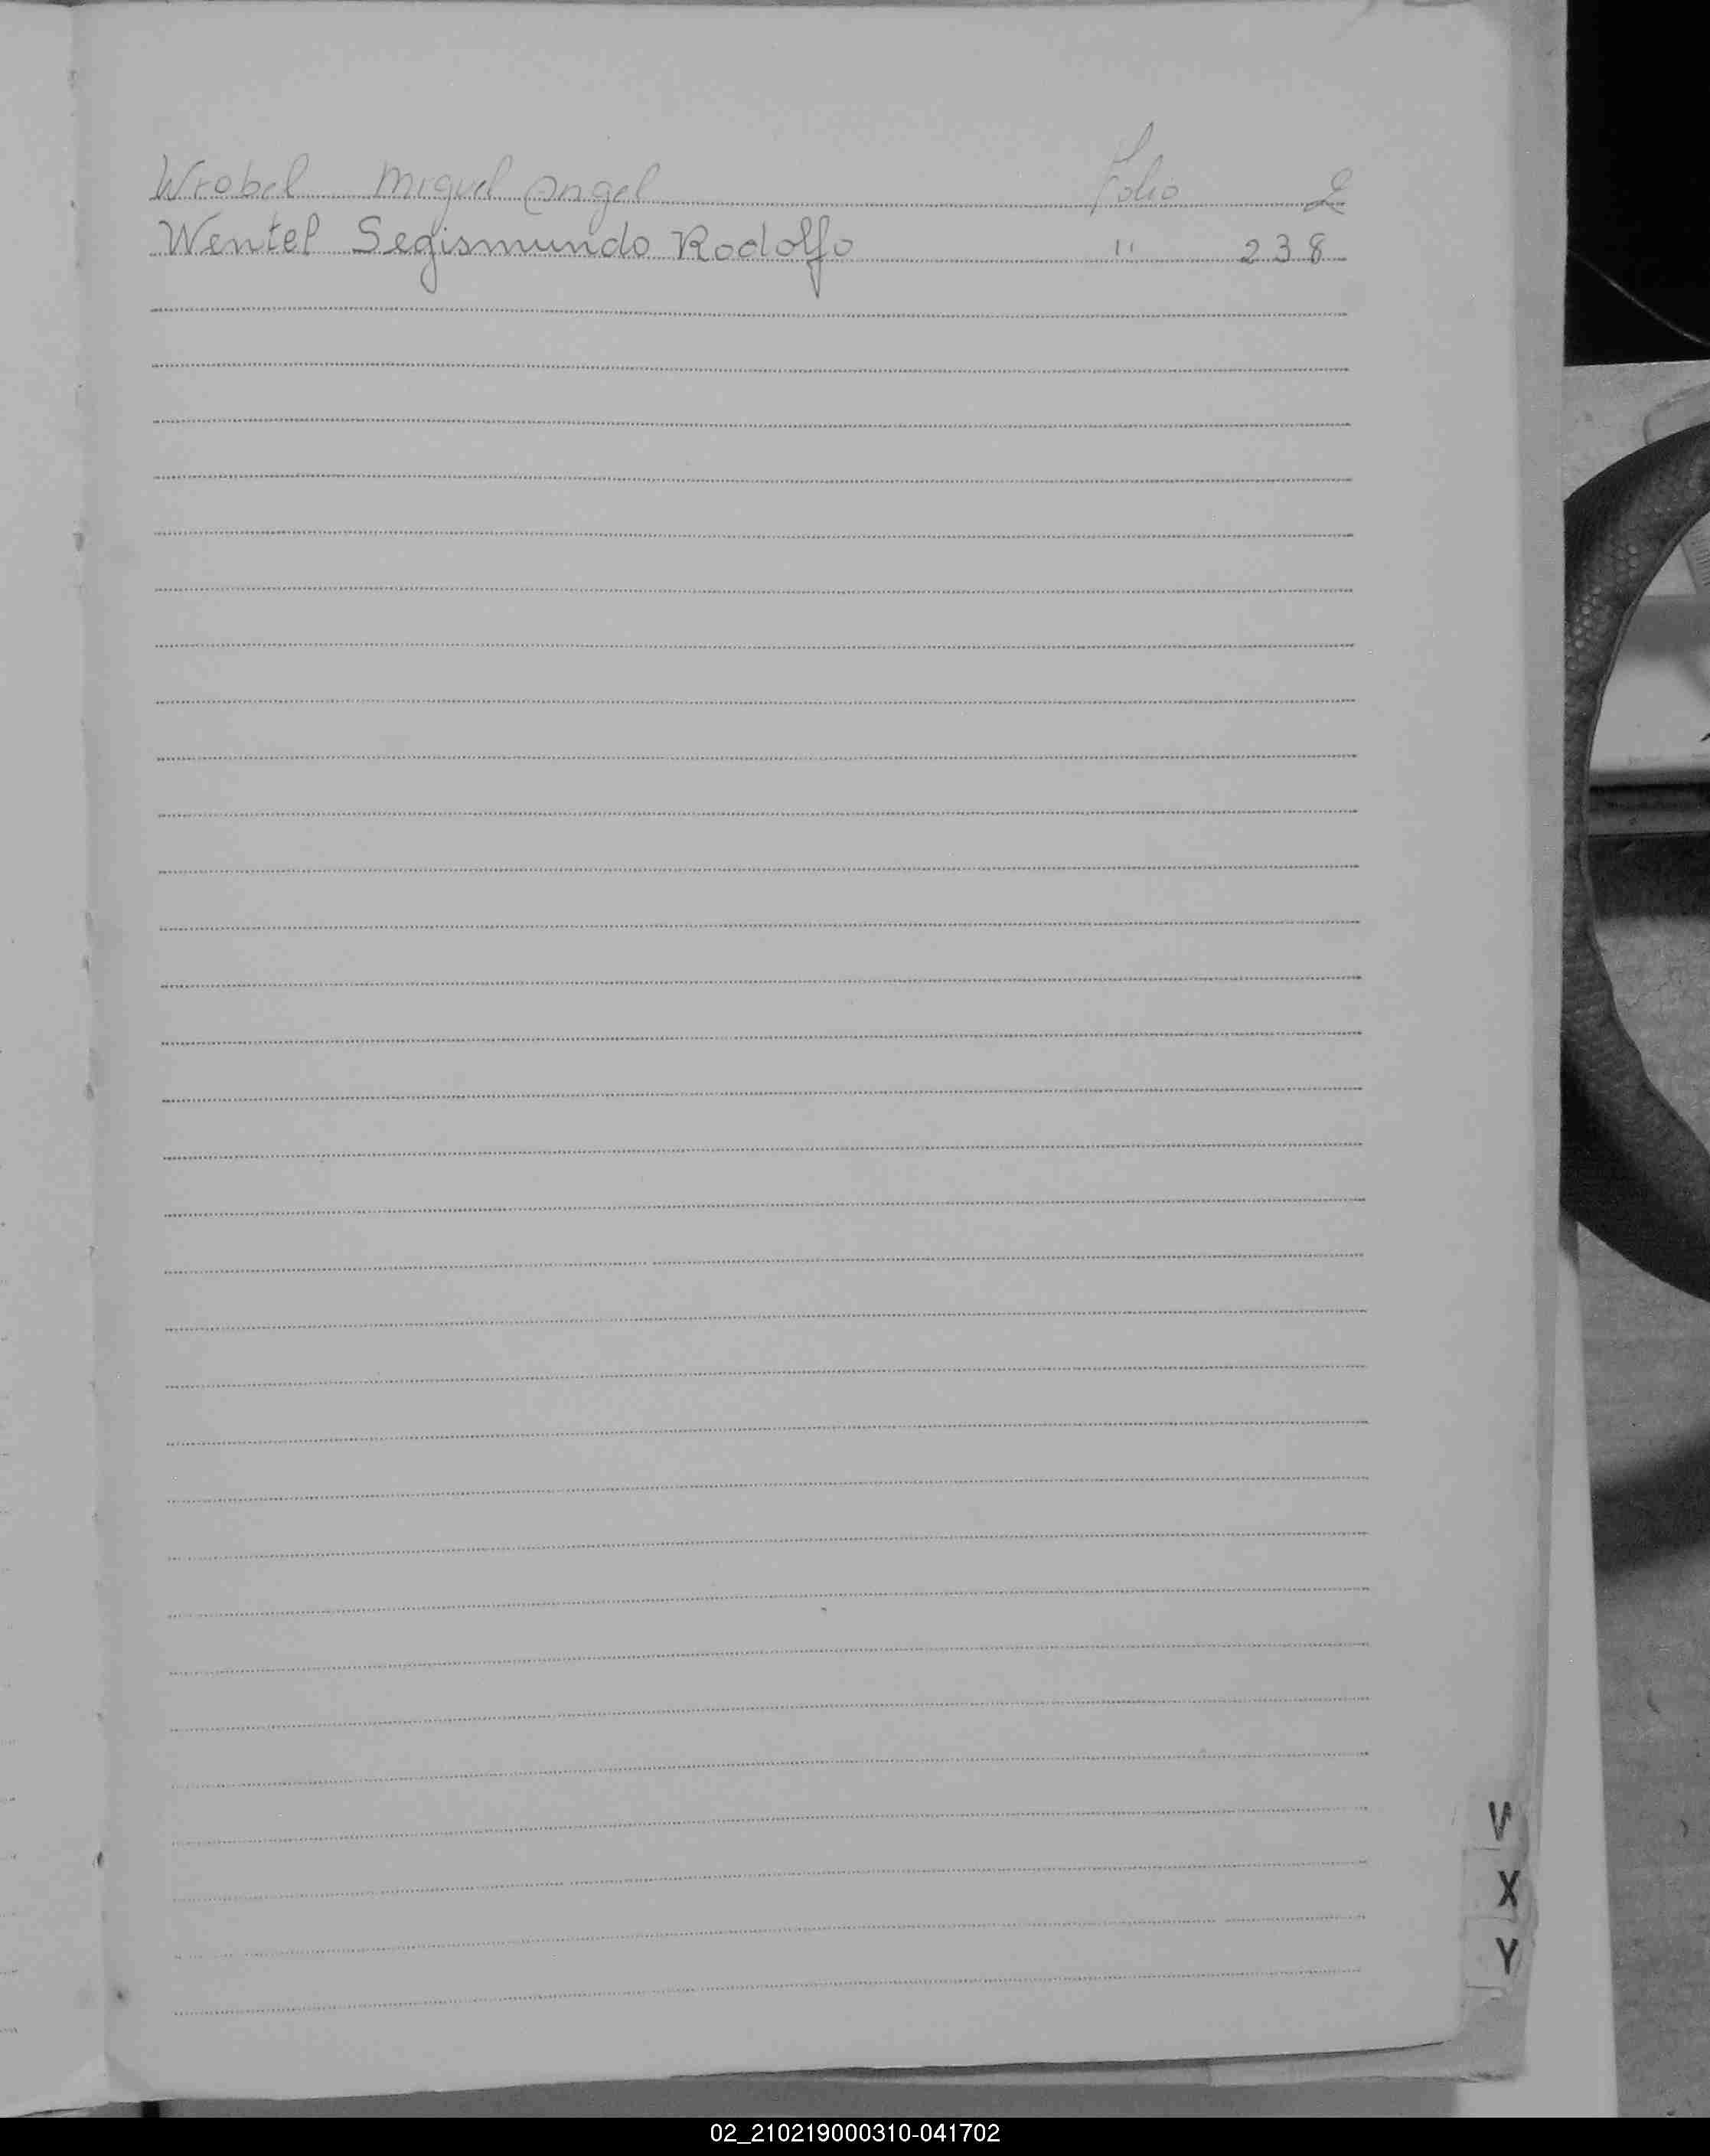 Wrobel Miguel Angel Folio 2
Wentel Segismundo Rodolfo " 238
W
X
Y
02_210219000310-041702